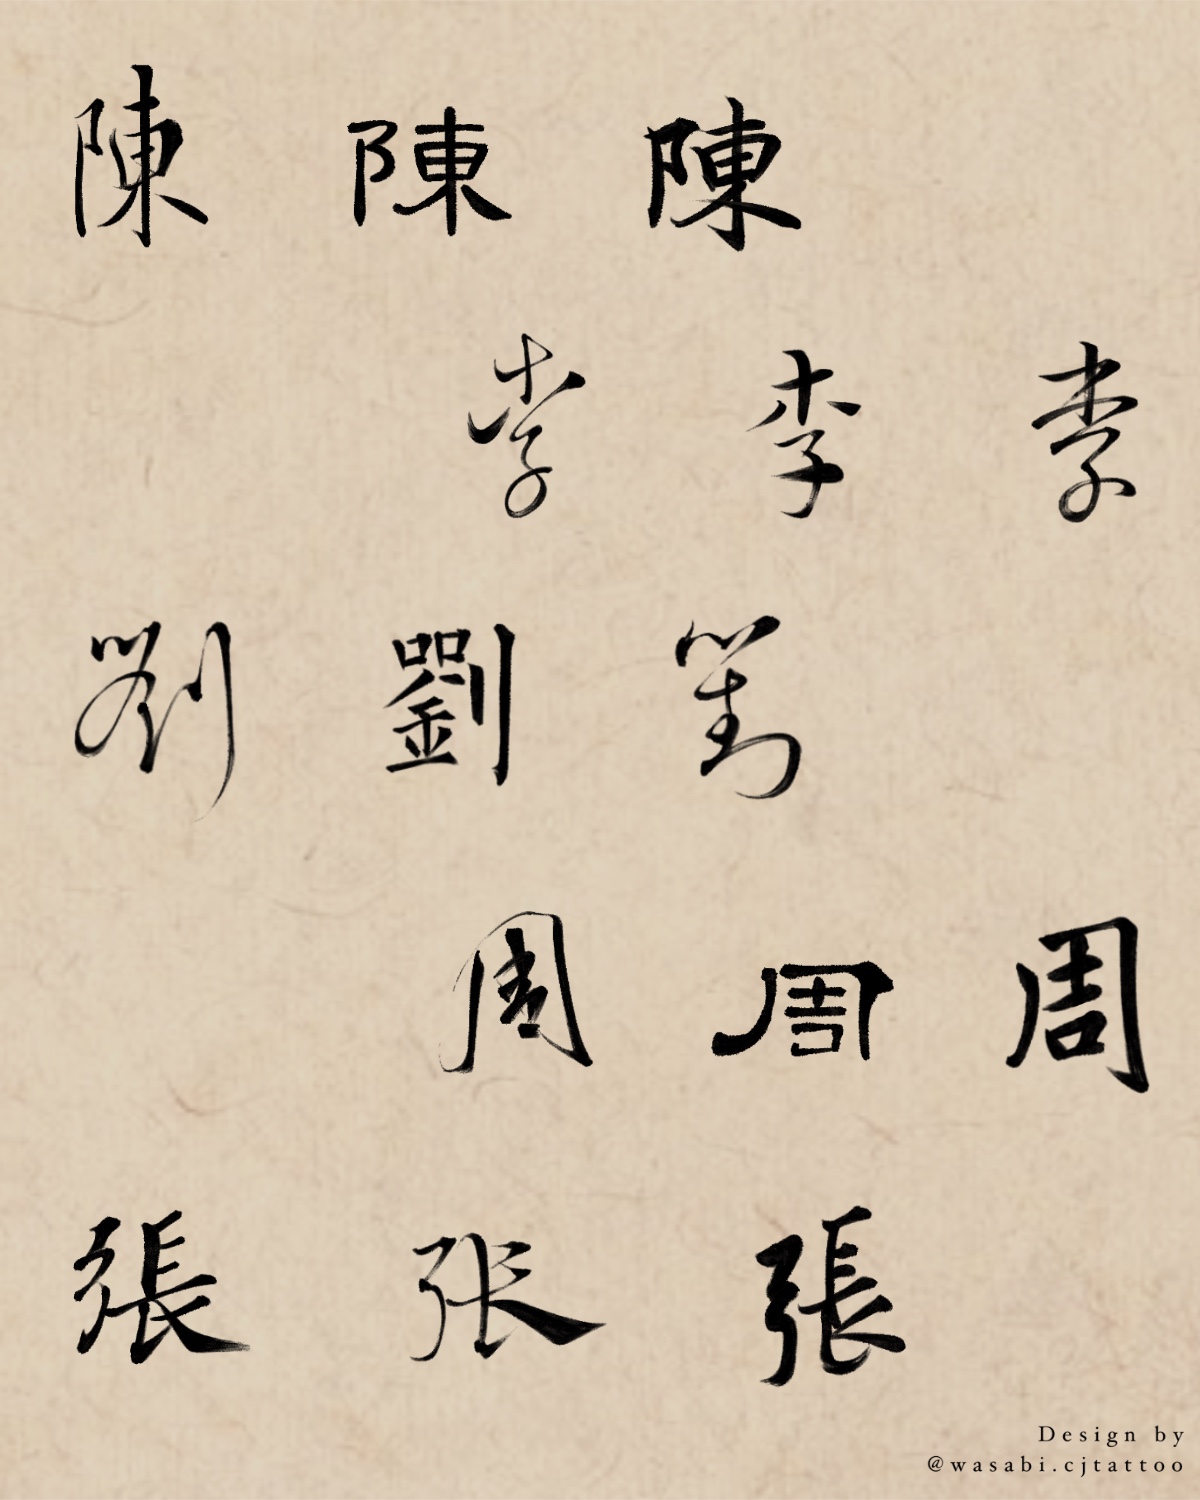 陳 陳 陳
李 李 李
劉 劉 劉
周 周 周
張 张 張
Design by
@wasabi.cjtattoo